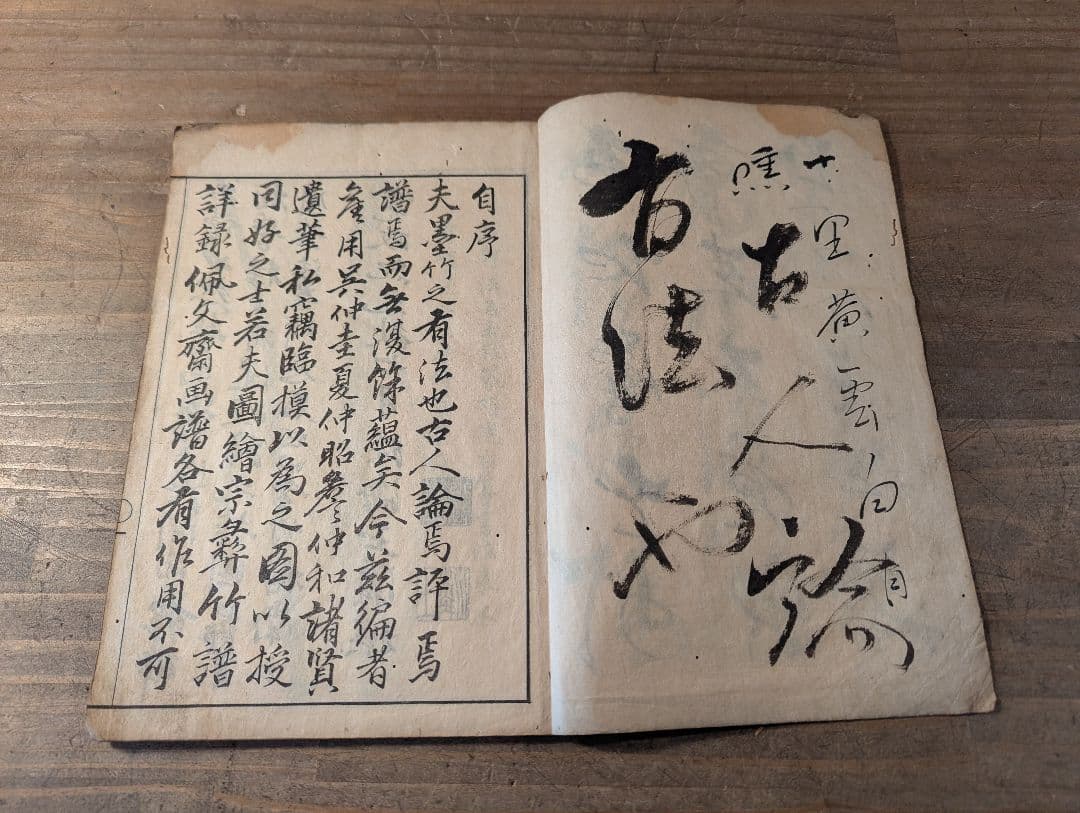 十里黄雲白日
曛
古人論
有法也
自序
夫墨竹之有法也古人論焉評焉
譜焉而無復餘蘊矣今茲編者
用呉仲圭夏仲昭詹仲和諸賢
遺筆私竊臨摸以為之図以授
同好之士若夫圖繪宗彝竹譜
詳録佩文齋画譜各有作用不可